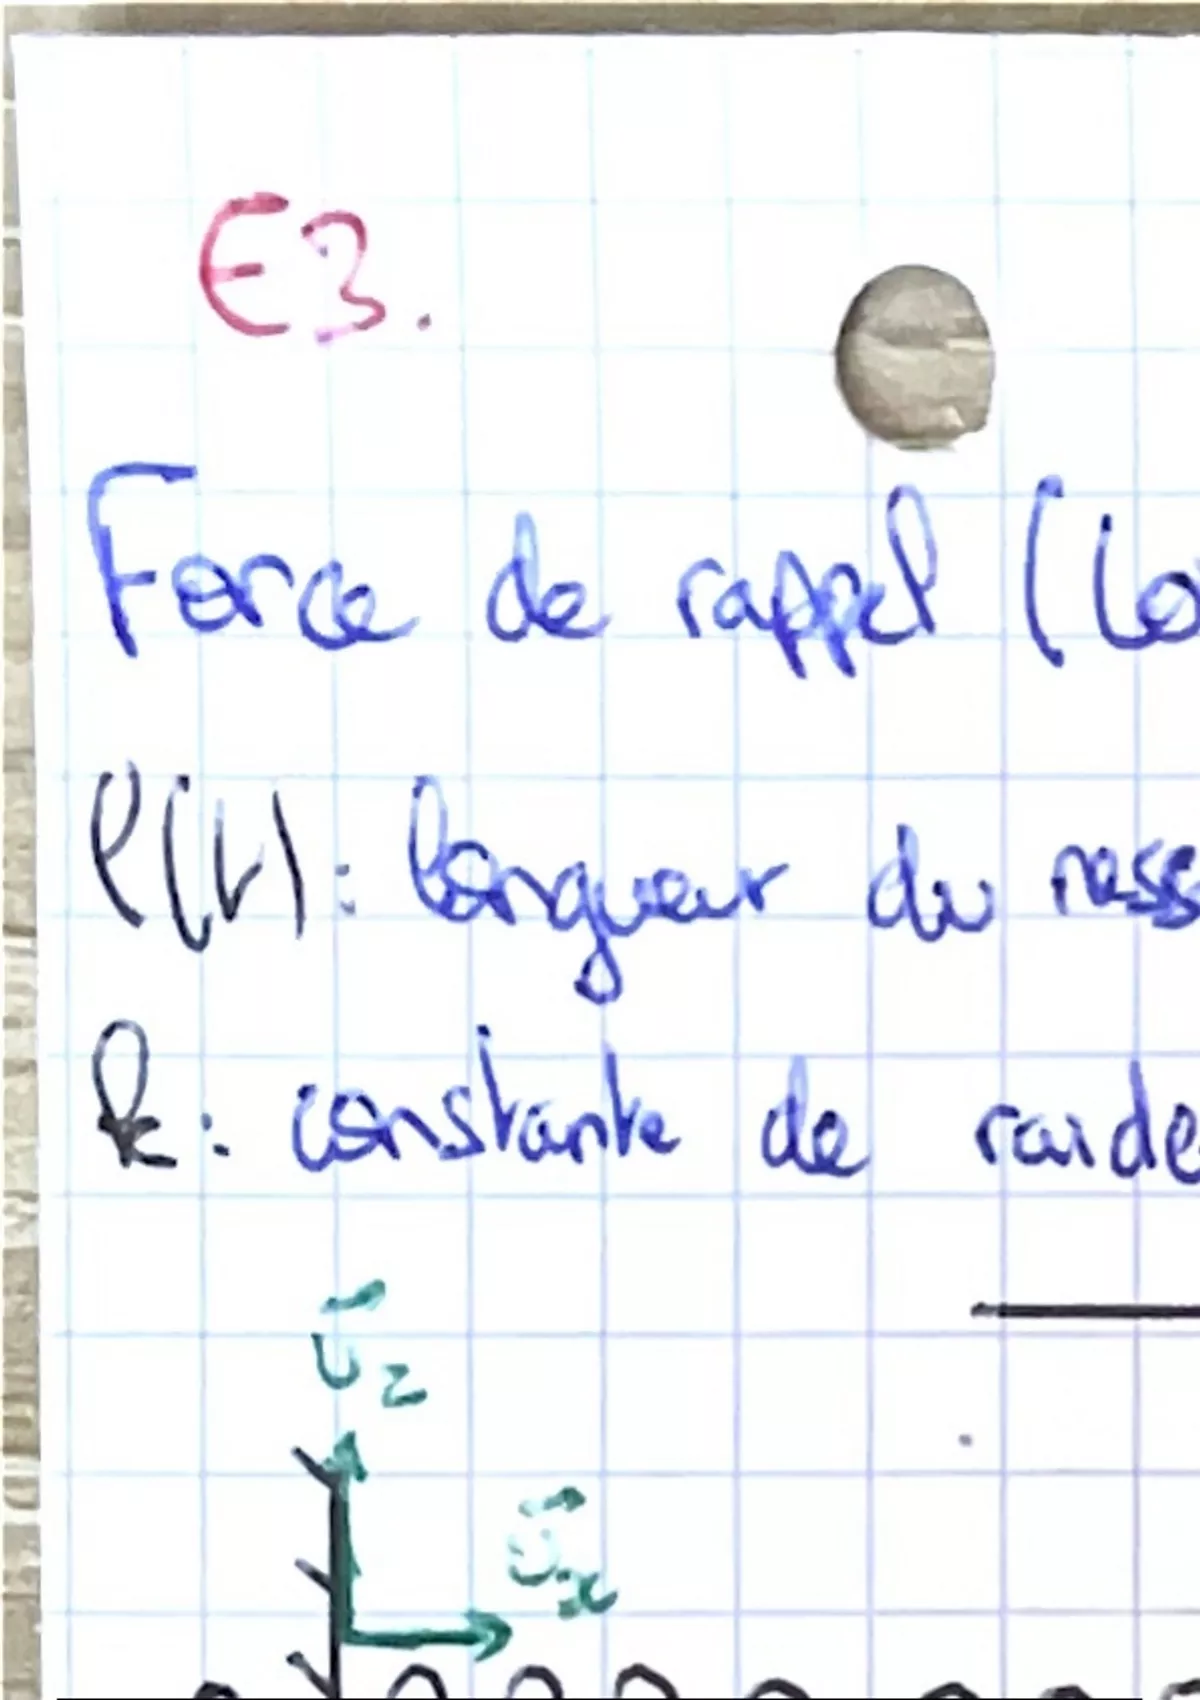 E3.
Force de rappel (Lo
l(t): longueur du ress
k: constante de raide
u⃗z
u⃗x